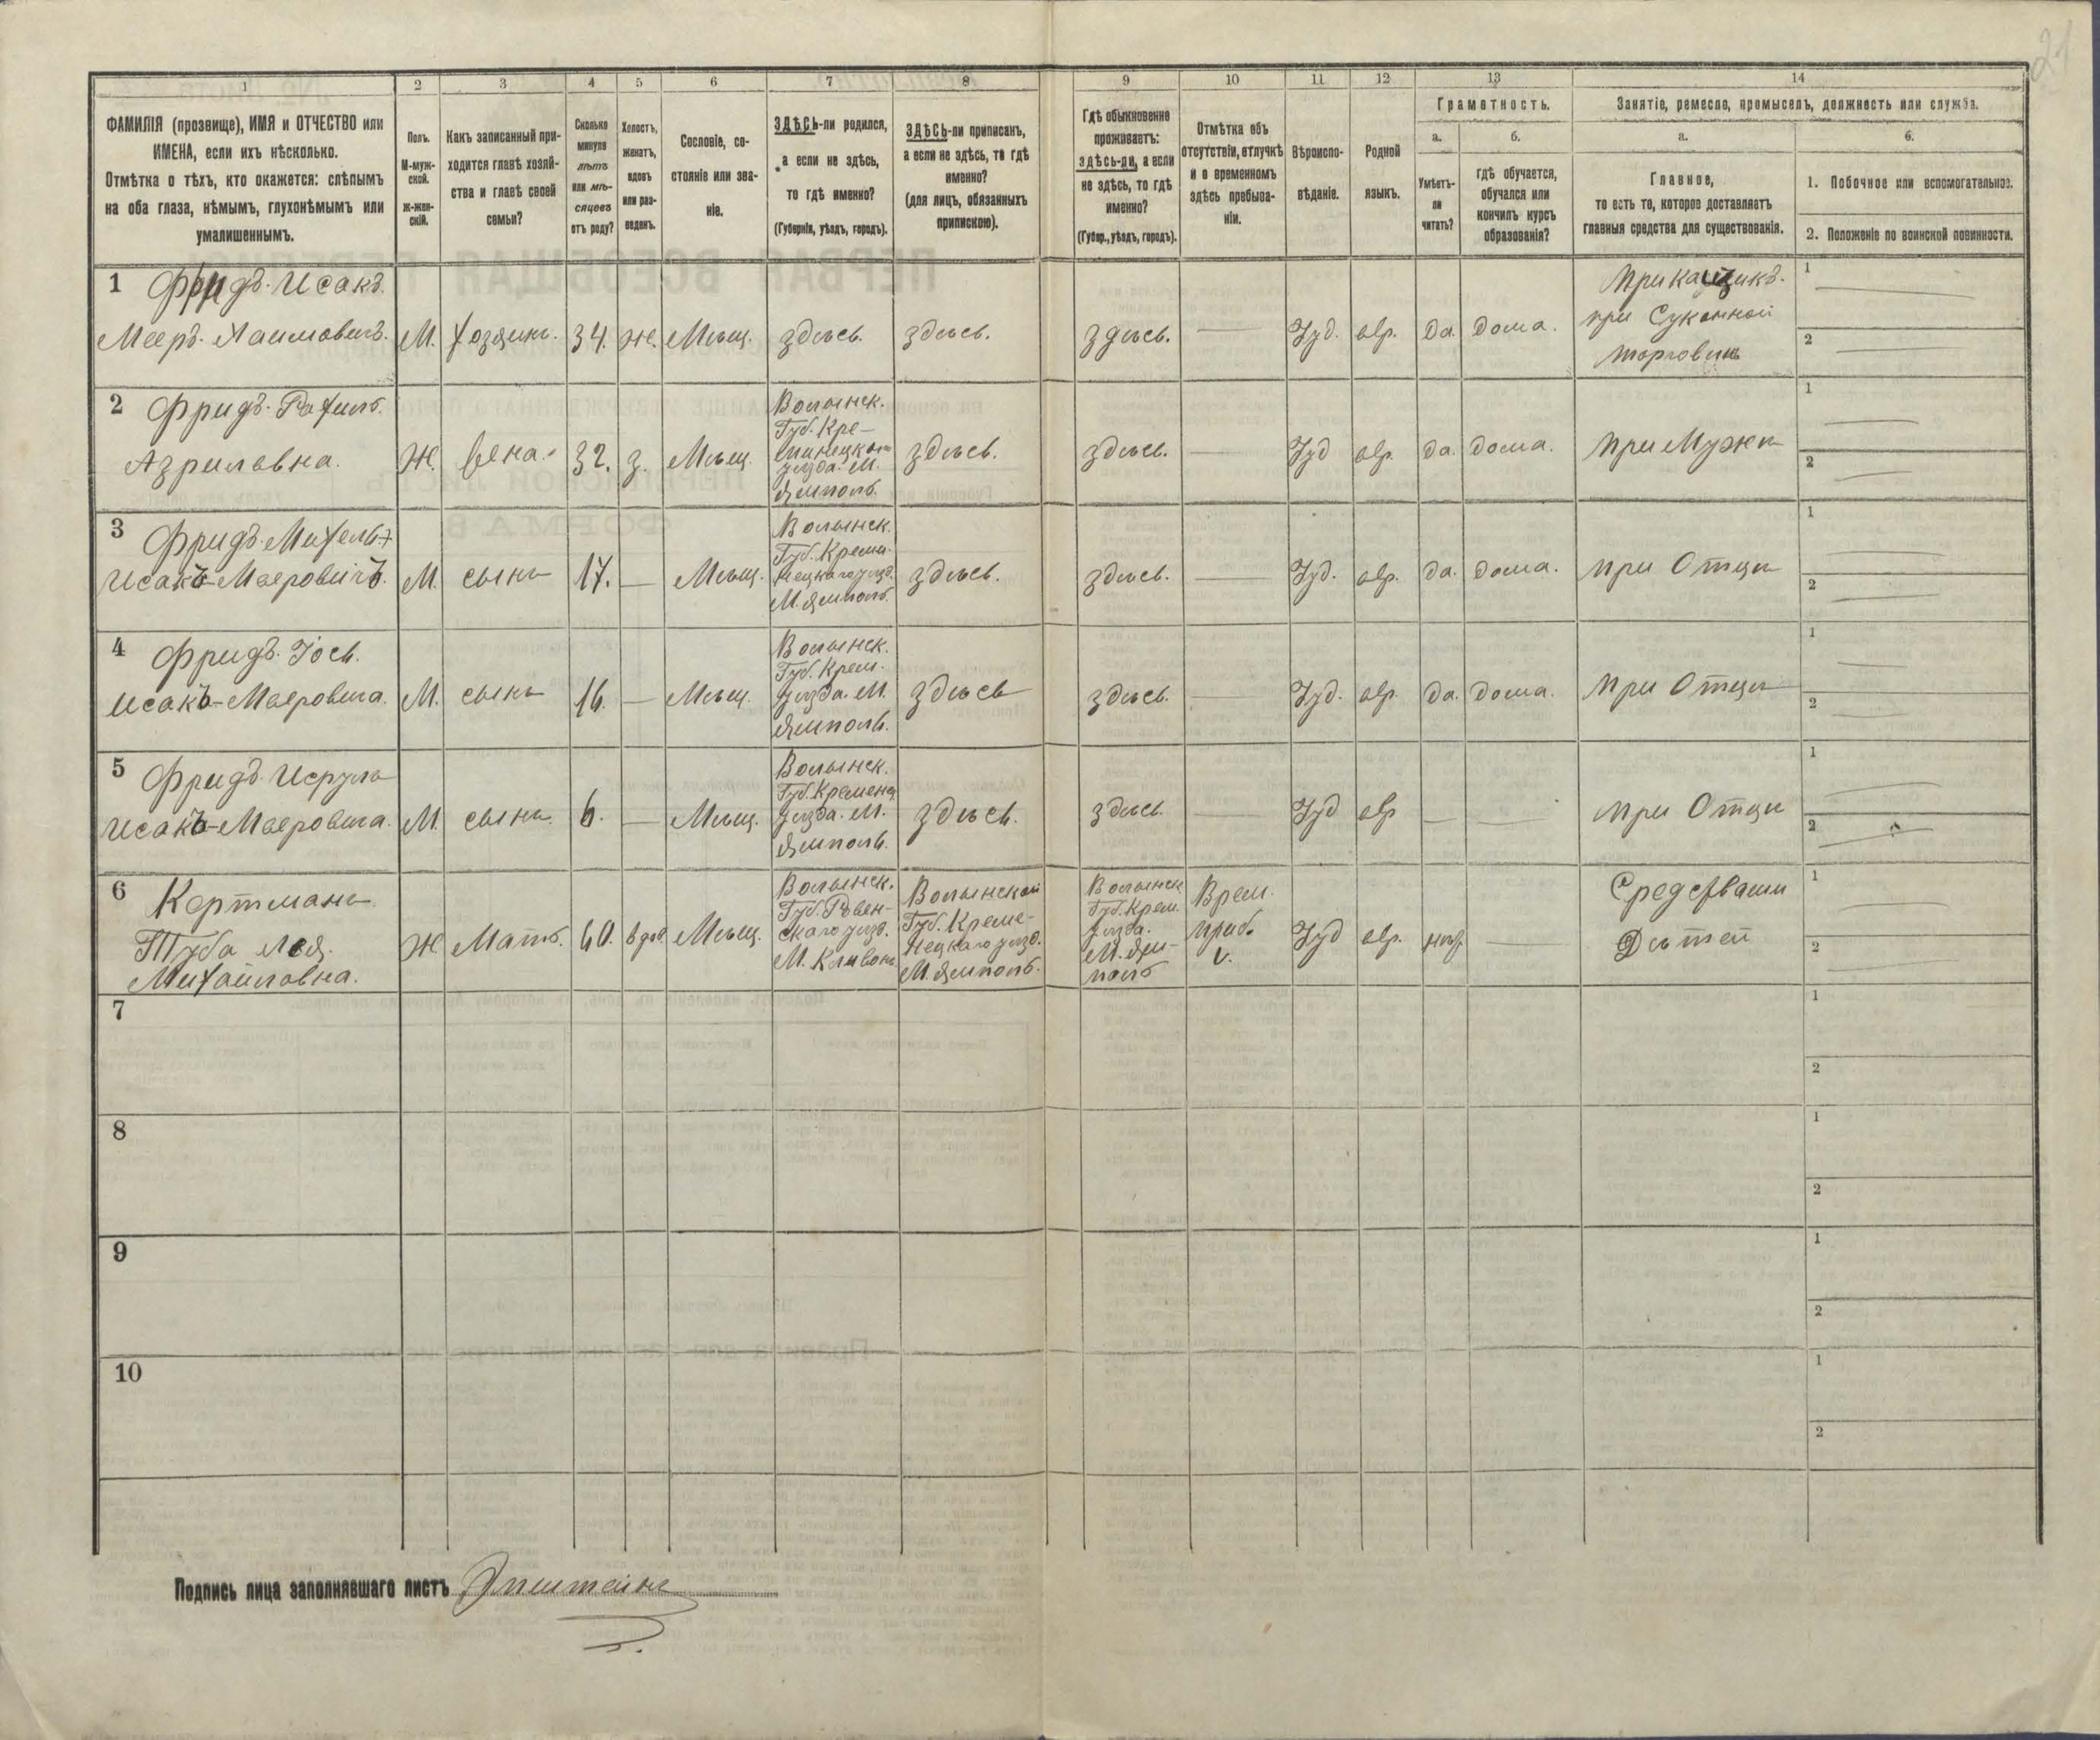 21
1
2
3
4
5
6
7
8
9
10
11
12
13
14
ФАМИЛІЯ (прозвище), ИМЯ и ОТЧЕСТВО или
ИМЕНА, если ихъ нѣсколько.
Отмѣтка о тѣхъ, кто окажется: слѣпымъ
на оба глаза, нѣмымъ, глухонѣмымъ или
умалишеннымъ.
Полъ.
М-муж-
ской.
Ж-жен-
скій.
Какъ записанный при-
ходится главѣ хозяй-
ства и главѣ своей
семьи?
Сколько
минуло
лѣтъ
или мѣ-
сяцевъ
отъ роду?
Холостъ,
женатъ,
вдовъ
или раз-
веденъ.
Сословіе, со-
стояніе или зва-
ніе.
ЗДѢСЬ-ли родился,
а если не здѣсь,
то гдѣ именно?
(Губернія, уѣздъ, городъ).
ЗДѢСЬ-ли приписанъ,
а если не здѣсь, то гдѣ
именно?
(для лицъ, обязанныхъ
припискою).
Гдѣ обыкновенно
проживаетъ:
здѣсь-ли, а если
не здѣсь, то гдѣ
именно?
(Губер., уѣздъ, городъ).
Отмѣтка объ
отсутствіи, отлучкѣ
и о временномъ
здѣсь пребыва-
ніи.
Вѣроиспо-
вѣданіе.
Родной
языкъ.
Грамотность.
а.
Умѣетъ-
ли
читать?
б.
гдѣ обучается,
обучался или
кончилъ курсъ
образованія?
Занятіе, ремесло, промыселъ, должность или служба.
а.
Главное,
то есть то, которое доставляетъ
главныя средства для существованія.
б.
1. Побочное или вспомогательное.
2. Положеніе по воинской повинности.
1 Фридъ Исакъ
Мееръ Хаимовичъ. М. Хозяинъ. 34. Ж. Мѣщ. здѣсь. здѣсь. здѣсь. Іуд. евр. да. дома.
Прикащикъ.
при Суконной
торговли
1
2
2 Фридъ Рахиль
Азриловна. Ж. Жена. 32. з. Мѣщ.
Волынск.
Губ. Кре-
менецкаго
уѣзда. М.
Ямполь.
здѣсь. здѣсь. Іуд евр. да. дома. при Мужѣ
1
2
3 Фридъ Михель
Исакъ-Мееровичъ. М. сынъ 17. Мѣщ.
Волынск.
Губ. Креме-
нецкаго уѣзд.
М. Ямполь.
здѣсь. здѣсь. Іуд. евр. да. дома. при Отцѣ
1
2
4 Фридъ Іось.
Исакъ-Мееровича. М. сынъ 16. Мѣщ.
Волынск.
Губ. Крем.
уѣзда. М.
Ямполь.
здѣсь здѣсь. Іуд. евр. да. дома. при Отцѣ
1
2
5 Фридъ Исрулъ
Исакъ-Мееровича. М. сынъ. 6. Мѣщ.
Волынск.
Губ. Кременец.
уѣзда. М.
Ямполь.
здѣсь. здѣсь. Іуд евр при Отцѣ
1
2
6 Кортманъ
Туба Лея
Михайловна. Ж. Мать. 60. вдов. Мѣщ.
Волынск.
Губ. Ровен-
скаго уѣзд.
М. Кливонь
Волынской
Губ. Креме-
нецкаго уѣзд.
М. Ямполь.
Волынск
Губ. Крем.
уѣзда.
М. Ям-
поль
Врем.
преб.
Іуд евр. нѣт
Средствами
Дѣтей
1
2
7
1
2
8
1
2
9
1
2
10
1
2
Подпись лица заполнявшаго листъ Эпштейнъ